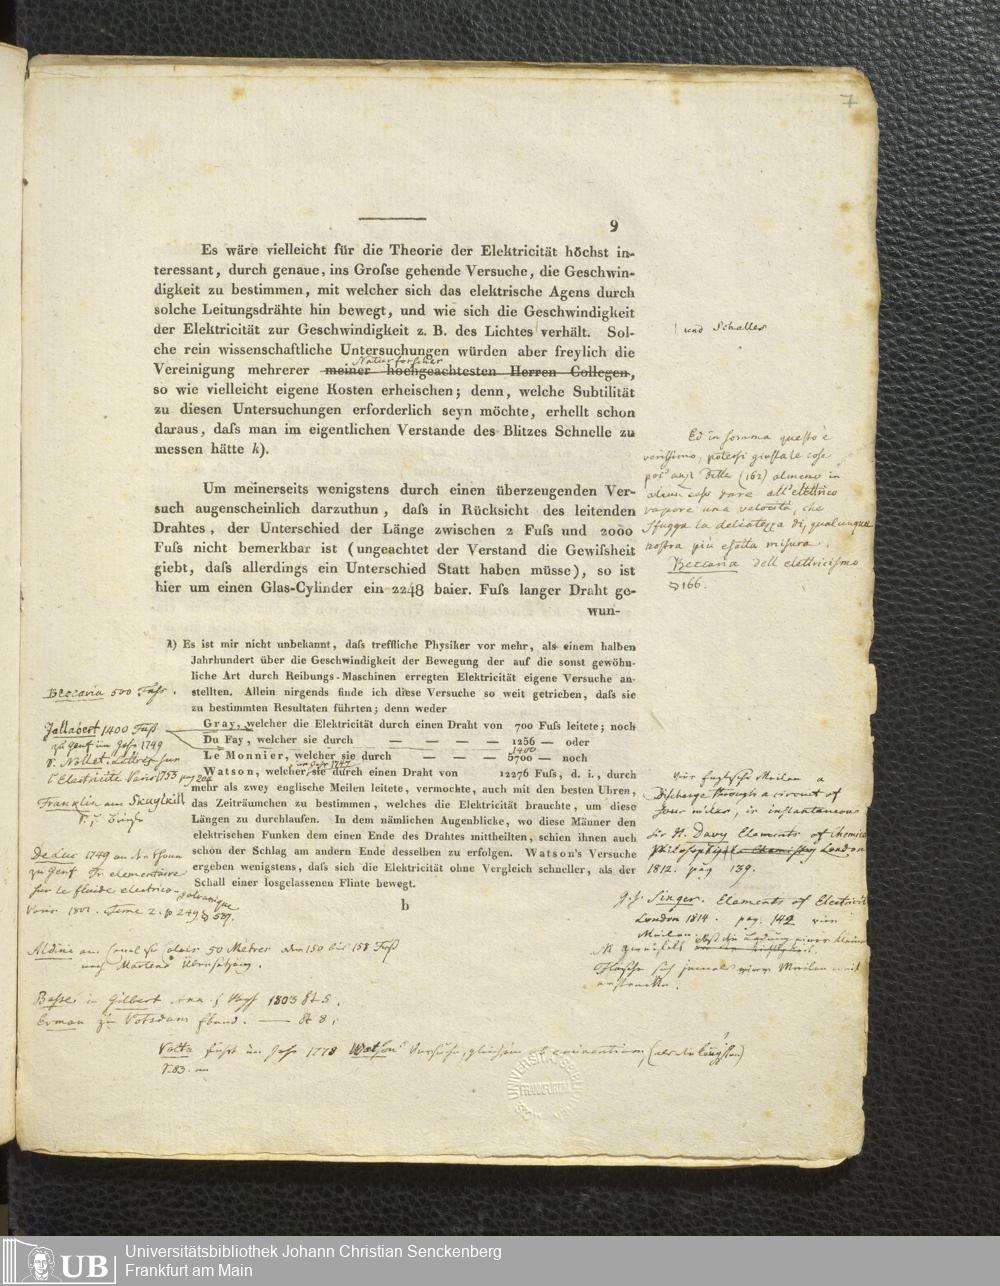 7
9
Es wäre vielleicht für die Theorie der Elektricität höchst in-
teressant, durch genaue, ins Groſse gehende Versuche, die Geschwin-
digkeit zu bestimmen, mit welcher sich das elektrische Agens durch
solche Leitungsdrähte hin bewegt, und wie sich die Geschwindigkeit
der Elektricität zur Geschwindigkeit z. B. des Lichtes verhält. Sol-
che rein wissenschaftliche Untersuchungen würden aber freylich die
Naturforscher
Vereinigung mehrerer meiner hochgeachtesten Herren Collegen,
so wie vielleicht eigene Kosten erheischen; denn, welche Subtilität
zu diesen Untersuchungen erforderlich seyn möchte, erhellt schon
daraus, daſs man im eigentlichen Verstande des Blitzes Schnelle zu
messen hätte k).
und Schalles
Um meinerseits wenigstens durch einen überzeugenden Ver-
such augenscheinlich darzuthun, daſs in Rücksicht des leitenden
Drahtes, der Unterschied der Länge zwischen 2 Fuſs und 2000
Fuſs nicht bemerkbar ist (ungeachtet der Verstand die Gewiſsheit
giebt, daſs allerdings ein Unterschied Statt haben müsse), so ist
hier um einen Glas-Cylinder ein 2248 baier. Fuſs langer Draht ge-
wun-
Ed in somma questo è
verissimo, potersi giusta le cose
dette (162) almeno in
alcun caso dare all'elettrico
vapore una velocità, che
sfugga la delicatezza di qualunque
nostra più esatta misura.
Beccaria dell elettricismo
§ 166.
k) Es ist mir nicht unbekannt, daſs treffliche Physiker vor mehr, als einem halben
Jahrhundert über die Geschwindigkeit der Bewegung der auf die sonst gewöhn-
liche Art durch Reibungs-Maschinen erregten Elektricität eigene Versuche an-
stellten. Allein nirgends finde ich diese Versuche so weit getrieben, daſs sie
zu bestimmten Resultaten führten; denn weder
Gray, welcher die Elektricität durch einen Draht von 700 Fuſs leitete; noch
Du Fay, welcher sie durch — — — — 1256 — oder
1400
Le Monnier, welcher sie durch — — — 5700 — noch
im Jahr 1747
Watson, welcher sie durch einen Draht von 12276 Fuſs, d. i., durch
mehr als zwey englische Meilen leitete, vermochte, auch mit den besten Uhren,
das Zeiträumchen zu bestimmen, welches die Elektricität brauchte, um diese
Längen zu durchlaufen. In dem nämlichen Augenblicke, wo diese Männer den
elektrischen Funken dem einen Ende des Drahtes mittheilten, schien ihnen auch
schon der Schlag am andern Ende desselben zu erfolgen. Watson's Versuche
ergeben wenigstens, daſs sich die Elektricität ohne Vergleich schneller, als der
Schall einer losgelassenen Flinte bewegt.
b
Beccaria 500 Fuſs.
Jallabert 1400 Fuſs
zu Genf im Jahr 1749
v. Nollet. Lettres sur
l'Electricité Paris 1753 pag 204
Franklin am Skuylkill
De Luc 1749 an der Rhone
zu Genf Tr elementaire
sur le fluide electrico-
galvanique
Paris 1801. Tome 2. p 249 § 509.
Vier Englische Meilen a
Discharge through a circuit of
four miles, is instantaneous
Sir H. Davy Elements of Chemical
Philosophy London
1812. pag 139.
Singer. Elements of Electricity
London 1814. pag. 142 vier
Meilen.
Flasche sich jemals vier Meilen weit
erstreckte.
Aldini am Canal 50 Metres
nach Martens Übersetzung.
Basse in Gilbert Ann. 1803 St 5.
Erman zu Potsdam Ebend. — St 8.
Volta führt im Jahr 1778 Watsons Versuche,
UNIVERSITÄTSBIBLIOTHEK
FRANKFURT
UB
Universitätsbibliothek Johann Christian Senckenberg
Frankfurt am Main